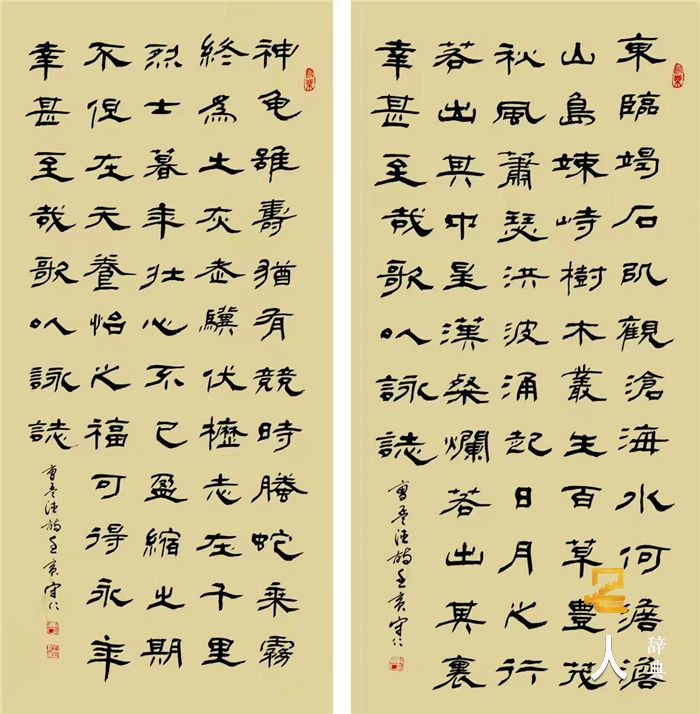 東臨竭石以觀滄海水何澹澹
山島竦峙樹木叢生百草豐茂
秋風蕭瑟洪波涌起日月之行
若出其中星漢粲爛若出其裏
幸甚至哉歌以詠誌
曹孟德詩壬寅守仁
神龟雖壽猶有競時騰蛇乘霧
終爲土灰老驥伏櫪志在千里
烈士暮年壯心不已盈縮之期
不但在天養怡之福可得永年
幸甚至哉歌以詠誌
曹孟德詩壬寅守仁
人
辞典